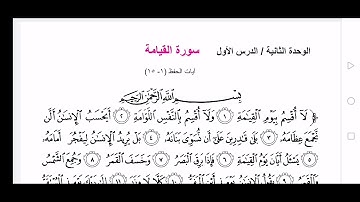 الوحدة الثانية / الدرس الأول سورة القيامة
آيات الحفظ (١-١٥)
بِسْمِ اللَّهِ الرَّحْمَٰنِ الرَّحِيمِ
﴿ لَا أُقْسِمُ بِيَوْمِ الْقِيَامَةِ ١ وَلَا أُقْسِمُ بِالنَّفْسِ اللَّوَّامَةِ ٢ أَيَحْسَبُ الْإِنسَانُ أَلَّن
نَّجْمَعَ عِظَامَهُ ٣ بَلَىٰ قَادِرِينَ عَلَىٰ أَن نُّسَوِّيَ بَنَانَهُ ٤ بَلْ يُرِيدُ الْإِنسَانُ لِيَفْجُرَ أَمَامَهُ
٥ يَسْأَلُ أَيَّانَ يَوْمُ الْقِيَامَةِ ٦ فَإِذَا بَرِقَ الْبَصَرُ ٧ وَخَسَفَ الْقَمَرُ ٨ وَجُمِعَ الشَّمْسُ